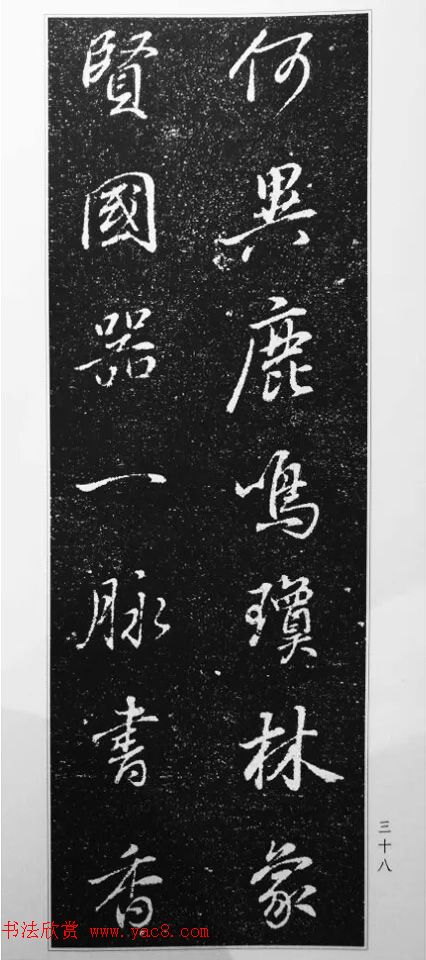 何異鹿鳴瓊林象
賢國器一脉書香
三十八
书法欣赏 www.yac8.com